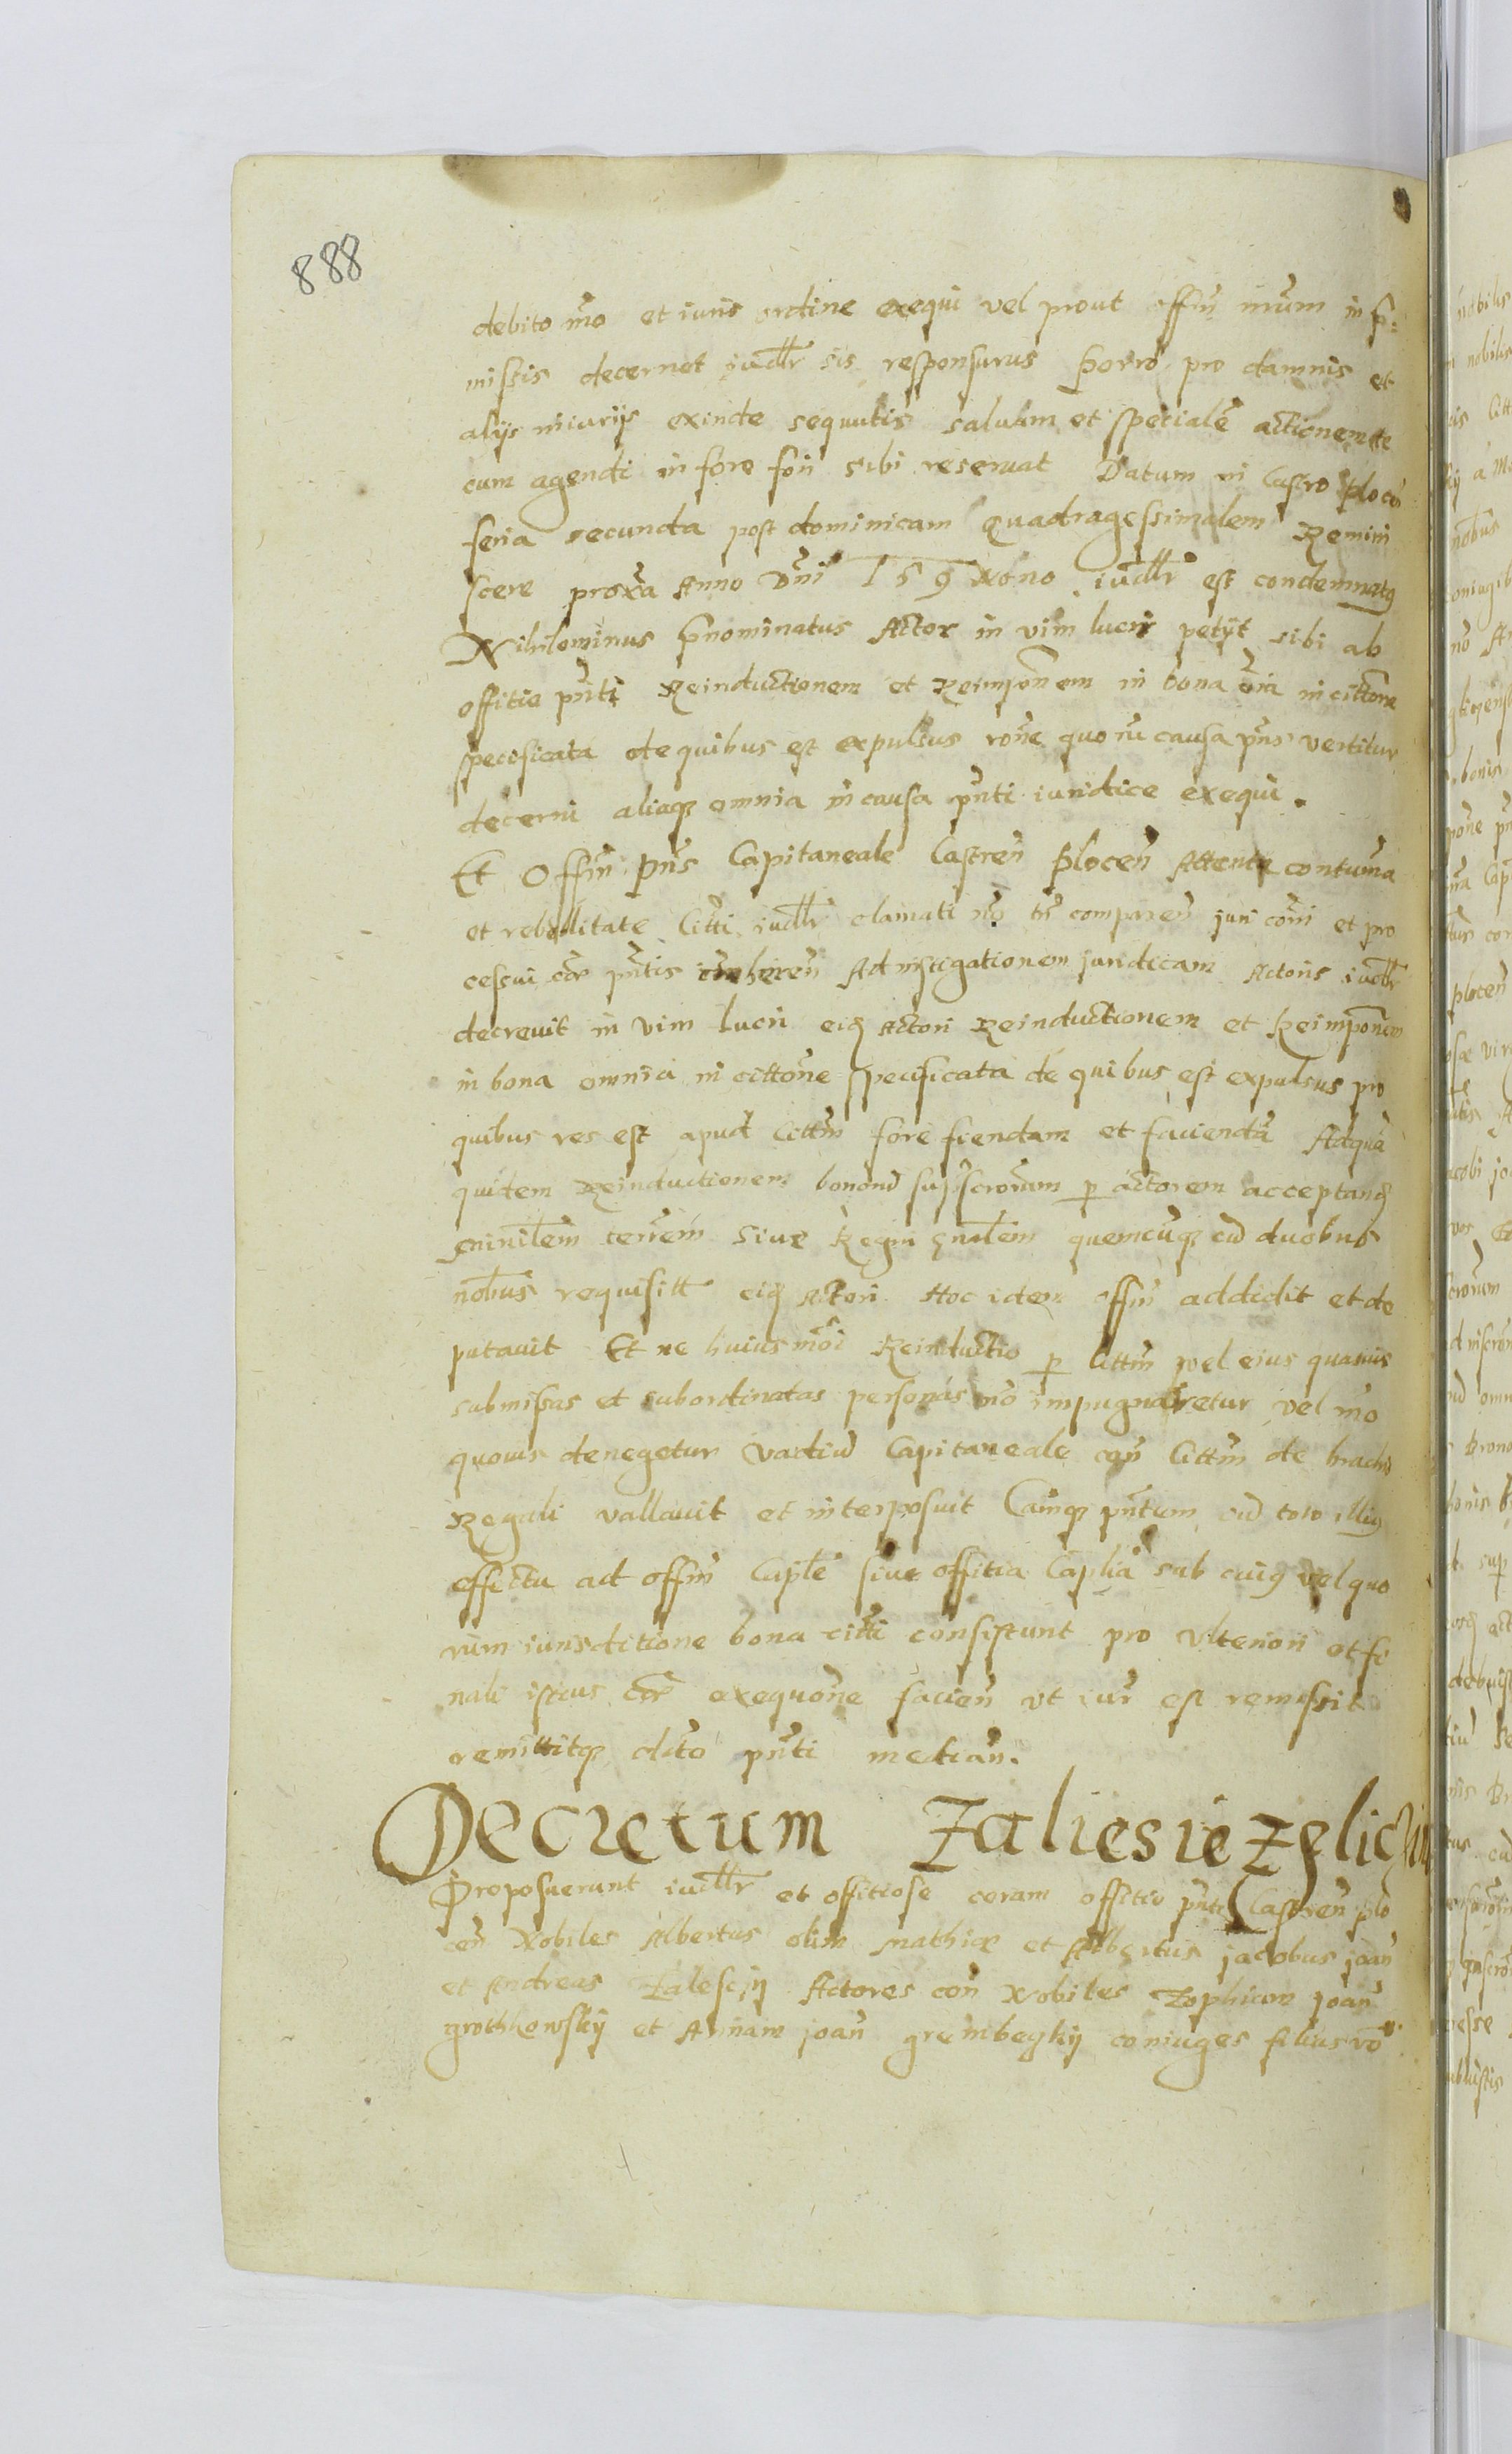 888
debito mō et iuris ordine exequi vel prout offm̄ nr̄um in p̄:
missis decernet iudllr sis responsurus Porro pro damnis et
alijs iniurijs exinde sequutis saluam et specialē actionem te
cum agendi in foro fōri sibi reseruat Datum in Castro ploceñ
feria secunda post dominicam Quadragessimalem Remini
scere proxa Anno Dn̄i 159 Nono iudllr est condemnatq
Nihilominus p̄nominatus Actor in vim lucri petijt sibi ab
offitio pn̄ti Reinductionem et Reimponem in bona oīa in cittone
specificata de quibus est expulsus rōne quorū causa pn̄s vertitur
decerni aliaq omnia in causa pn̄ti iuridice exequi.
Et Offm̄ pn̄s Capitaneale Castreñ Ploceñ Attenta contuma
et rebellitate Citti iudllr clamati nō tn̄ compareñ juri cōm̄i et pro
cessui pn̄tis inhereñ Ad instigationem juridicam Actoris iudllr
decreuit in vim lucri eiq Actori Reinductionem et Reimponem
in bona omnia in cittone specificata de quibus est expulsus pro
quibus res est apud Cittm̄ fore fiendam et faciendā Adquā
quidem Reinductionem bonorū supscrorum p actorem acceptanq
mīnilem terrem siue Regni gn̄alem quemcuq cū duobus
nobus requisitt eiq Actori Hoc idem offm̄ addidit et de
putauit Et ne huiusmōi Reinductio p Cittm̄ vel eius quasuis
submissas et subordinatas personas nō impugnaretur vel mō
quouis denegetur vadiū Capitaneale con̄ Cittm̄ de brachio
Regali vallauit et interposuit Camq pn̄tem cū toto illiq
effectu ad offm̄ Caple siue offitia Caplia sub cuiq vel quo
rum iurisditione bona citti consistunt pro vlteriori et fi
nali istius exequone facieñ vt iur est remissit
remittitq dcto pn̄ti median.
Decretum Zaliesie Zelich
Proposuerunt iudllr et offitiose coram offitio pn̄ti Castreñ plo
ceñ Nobiles Albertus olim Mathiæ et Albertus jacobus joan
et Andreas Zalescij Actores con̄ Nobiles Zophiam joan
grothkowskij et Annam joan grembeczkij coniuges filias